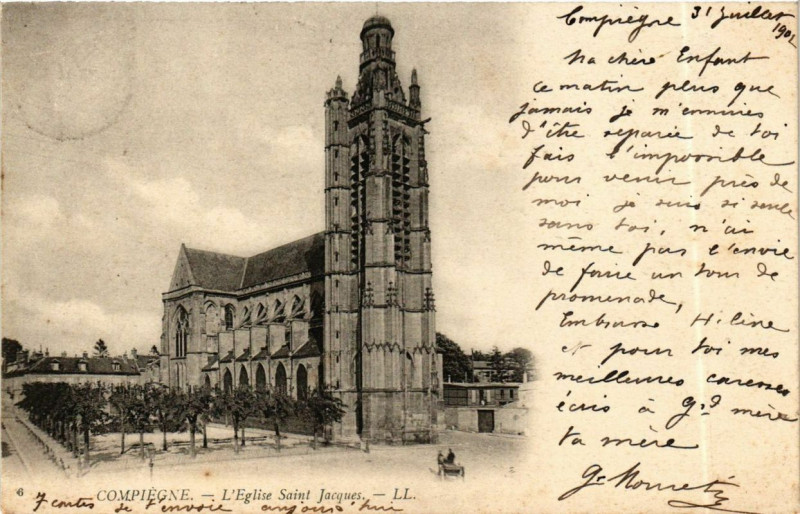 Compiègne 31 juillet
1902
Ma chère Enfant
ce matin plus que
jamais je m'ennuies
d'être séparée de toi
fais l'impossible
pour venir près de
moi je suis si seule
sans toi, n'ai
même pas l'envie
de faire un tour de
promenade,
Embrasse Hélène
et pour toi mes
meilleures caresses
écris à Gd mère
ta mère
6 COMPIÈGNE. — L'Eglise Saint Jacques. — LL.
7 contes de t'envoie aujourd'hui